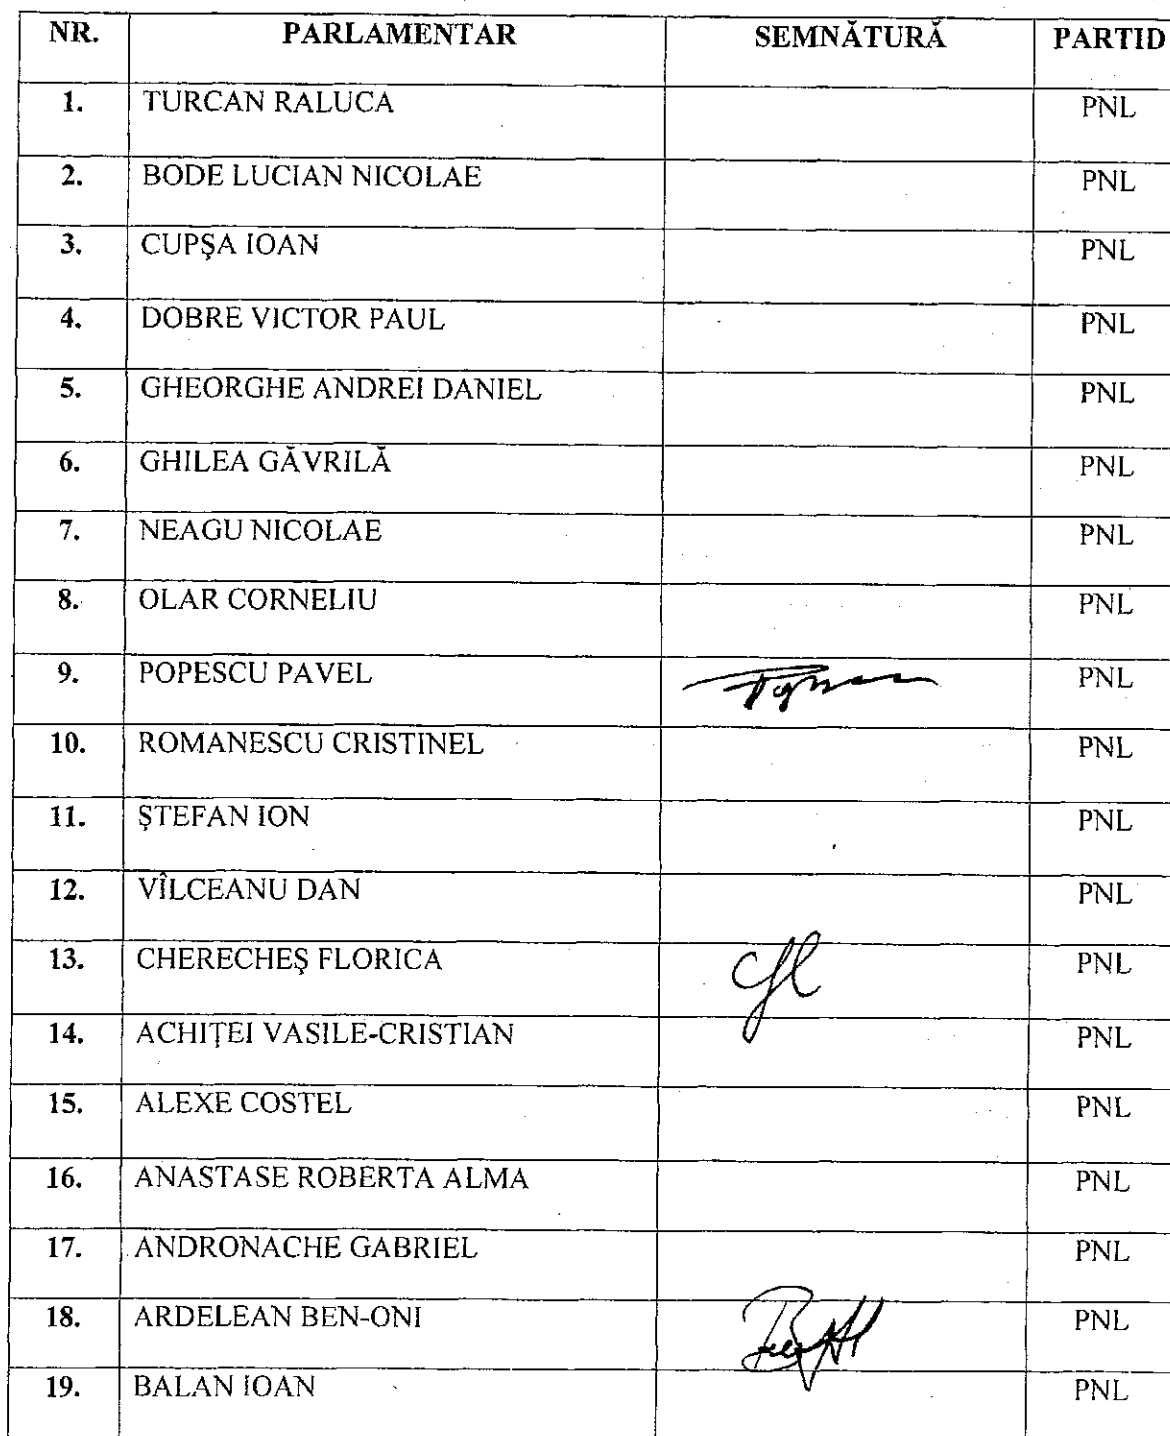 NR. PARLAMENTAR SEMNĂTURĂ PARTID
1. TURCAN RALUCA PNL
2. BODE LUCIAN NICOLAE PNL
3. CUPŞA IOAN PNL
4. DOBRE VICTOR PAUL PNL
5. GHEORGHE ANDREI DANIEL PNL
6. GHILEA GĂVRILĂ PNL
7. NEAGU NICOLAE PNL
8. OLAR CORNELIU PNL
9. POPESCU PAVEL PNL
10. ROMANESCU CRISTINEL PNL
11. ŞTEFAN ION PNL
12. VÎLCEANU DAN PNL
13. CHERECHEŞ FLORICA PNL
14. ACHIŢEI VASILE-CRISTIAN PNL
15. ALEXE COSTEL PNL
16. ANASTASE ROBERTA ALMA PNL
17. ANDRONACHE GABRIEL PNL
18. ARDELEAN BEN-ONI PNL
19. BALAN IOAN PNL